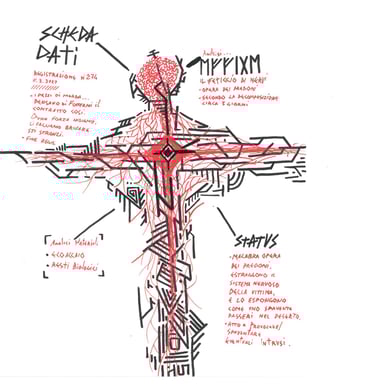 SCHEDA
DATI
REGISTRAZIONE N°274
///////////
I PEZZI DI MERDA...
PENSANO DI FOTTERMI IL
CONTRATTO COSÌ.
FORZA INSIEME,
LI FACCIAMO BALLARE
STI STRONZI.
- FINE REG.
Analisi...
IL FETICCIO DI
- OPERA DEI PREDONI
- SECONDO LA DECOMPOSIZIONE
CIRCA 2 GIORNI
Analisi Materiali
• ECOACCIAIO
• RESTI Biologici
STATUS
• MACABRA OPERA
DEI PREDONI,
ESTRAGGONO IL
SISTEMA NERVOSO
DELLA VITTIMA,
E LO ESPONGONO
COME UNO SPAVENTA
PASSERI NEL DESERTO.
• ATTO A PROVOCARE/
SPAVENTARE
EVENTUALI INTRUSI.